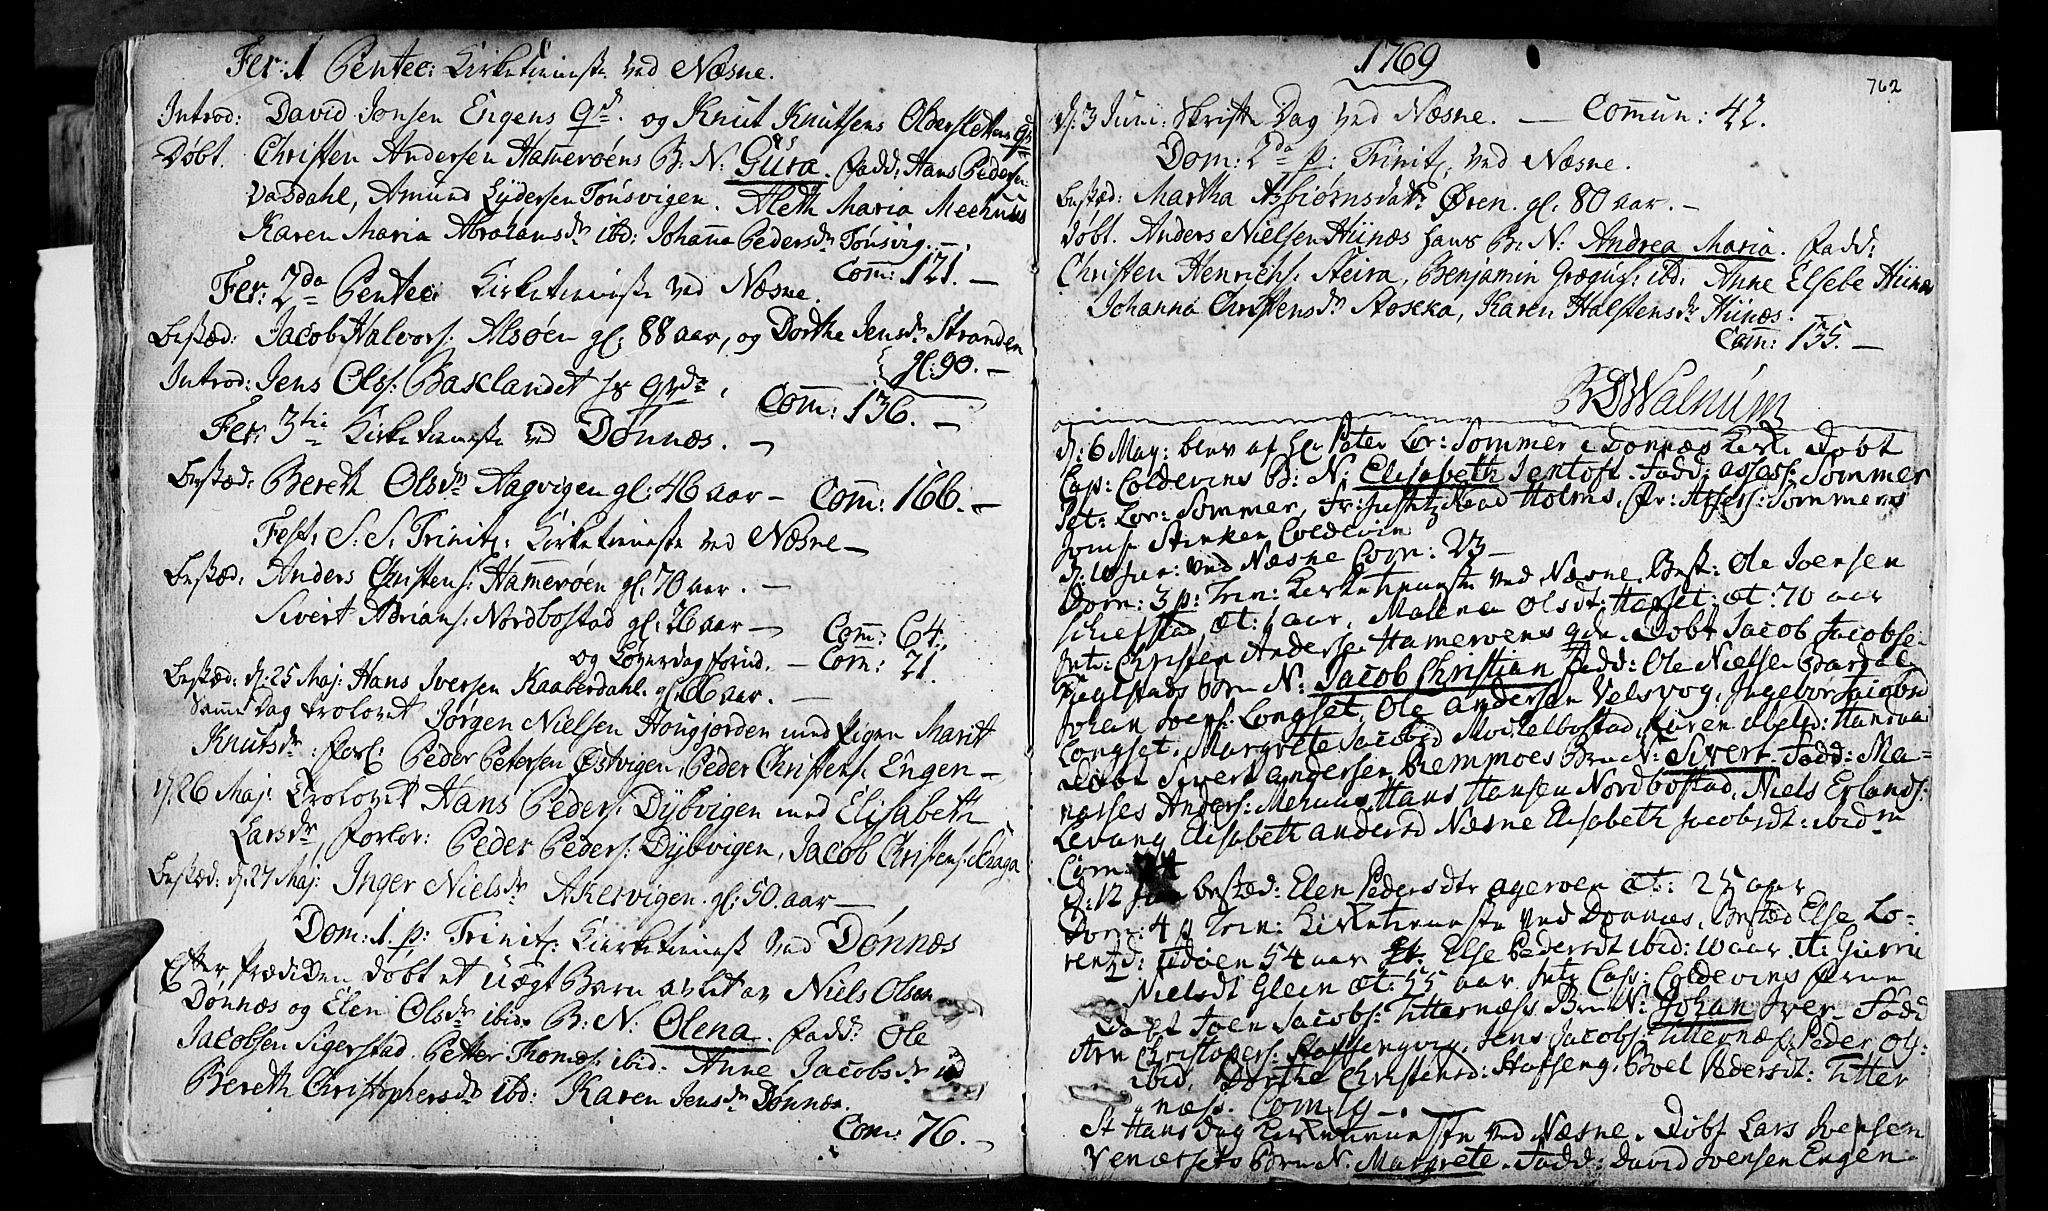 Fer: 1 Pentec: Kirketieniste ved Næsne.
Introd: David Jonsen Engens Qd. og Knut Knutsens Olderslettens Qd
Døbt. Christen Andersen Hamerøens B: N: Gura. fadd: Hans Peders:
Vassdahl, Amund Lydersen Tonsvigen. Aleth Maria Meehuus
Karen Maria Abrahamsdr ibd: Johanna Pedersdr Tonsvig. –
Com: 121. –
Fer: 2da Pentec: Kirketieniste ved Næsne.
Bestæd: Jacob Halvors: Alsøen gl: 88 aar, og Dorthe Jensdr Stranden
gl: 90. –
Introd: Jens Ols: Baselandet hs qvde.
Com: 136. –
Fer: 3tie Kirketieneste ved Dønnæs. –
Bestæd: Bereth Olsdr Aagvigen gl: 46 aar – Com: 166. –
Fest: S. S. Trinit: Kirketieniste ved Næsne –
Bestæd: Anders Christens: Hamerøen gl: 70 aar. –
Sivert Adrians: Nordbostad gl: 76 aar – Com: 64.
og Løverdag forud. – Com: 21.
Bestæd: d: 25 Maj: Hans Iversen Kaaberdahl. gl: 66 aar. –
Samme Dag trolovet Jørgen Nielsen Hougjorden med Pigen Marit
Knutsdr. forl: Peder Petersen Østvigen, Peder Christens: Engen –
d: 26 Maj: Trolovet Hans Peders: Dybvigen med Elisabeth
Larsdr, forlov: Peder Peders: Dybvigen, Jacob Christens: Schaga
Bestæd: d: 27 Maj: Inger Nielsdr Akervigen. gl: 50. aar –
Dom: 1. p: Trinit: Kirketieniste ved Dønnæs
Efter Prædiken døbt et uægt Barn avlet av Niels Olsen
Dønnæs og Elen Olsdr ibid: B: N: Olena. fadd: Ole
Jacobsen Sigerstad. Petter Thomes: ibid. Anne Jacobsdr ibd
Bereth Christophersdr ibd: Karen Jensdr Dønnæs.
Com: 76. –
1769
762
d: 3 Juni: Skrifte Dag ved Næsne. — Comun: 42.
Dom: 2da p: Trinit: ved Næsne.
Bestæd: Martha Asbiørnsdatr Øren. gl: 80 aar. –
Døbt. Anders Nielsen Hiinæs hans B: N: Andrea Maria. fadd:
Christen Henrichs: Steira, Benjamin Grægus: ibd: Anne Elsebe Hiinæs
Johanna Christensdr Stokka, Karen Halstensdr Hiinæs. –
Com: 135. –
BDWalnum
d: 6 May: blev af Hr Peter Lor: Sommer i Dønnæs Kirke Døbt
Cap: Coldevins B: N: Elisabeth Jentoft. fadd: assess: Sommer
Pet: Lor: Sommer, Fr: Justitz Raad Holms, fr: Assess: Sommers
Jomf: Stinken Coldevin
d: 10 Jun: ved Næsne Com: 23 –
Dom: 3 p: Trin: Kirketieneste ved Næsne. Best: Ole Joensen
æt: 1 aar, Malena Olsdt: æt: 70 aar
Int: Christen Andersen Hamerøens qde. Døbt Jacob Jacobse:
Barn N: Jacob Christian fadd: Ole Nielsen Bardal
Johan Joens: Longset, Ole Andersen Velsvog, Ingebor Jacobsd
Longset, Margrete Jacobsd Mickelbostad,
Døbt Sivert Andersen Remmøes Barn N: Sivert. Fadd: Ma=
nasses Anders: Hans Hansen Nordbostad, Niels Erlands:
Levang Elisabeth Andersd Næsne Elisabeth Jacobsdt: ibid
Com:
d: 12 bested: Elen Pedersdtr agerøen æt: 25 aar
Dom: 4 p Trin: Kirketieneste ved Dønnæs, Bested Else Lo=
rentzd: 54 aar Else Pedersdt ibid: 10 aar. It: Gurru
Nielsdt Glein æt: 55 aar Int: Cap: Coldevins frue
Døbt Joen Jacobs: Titternæss Barn N: Johan Iver. Fadd
Arn Christophers: Staffsengvig, Jens Jacobs: Titternæs, Peder Ols:
ibid, Dorthe Christensd: Stafseng, Boel Pedersdt: Titter
næs. Com: 19 –
St Hans dag Kirketieneste ved Næsne. Døbt Lars Ivensen
Venætsets Barn N. Margrete. Fadd: David Ivensen Engen